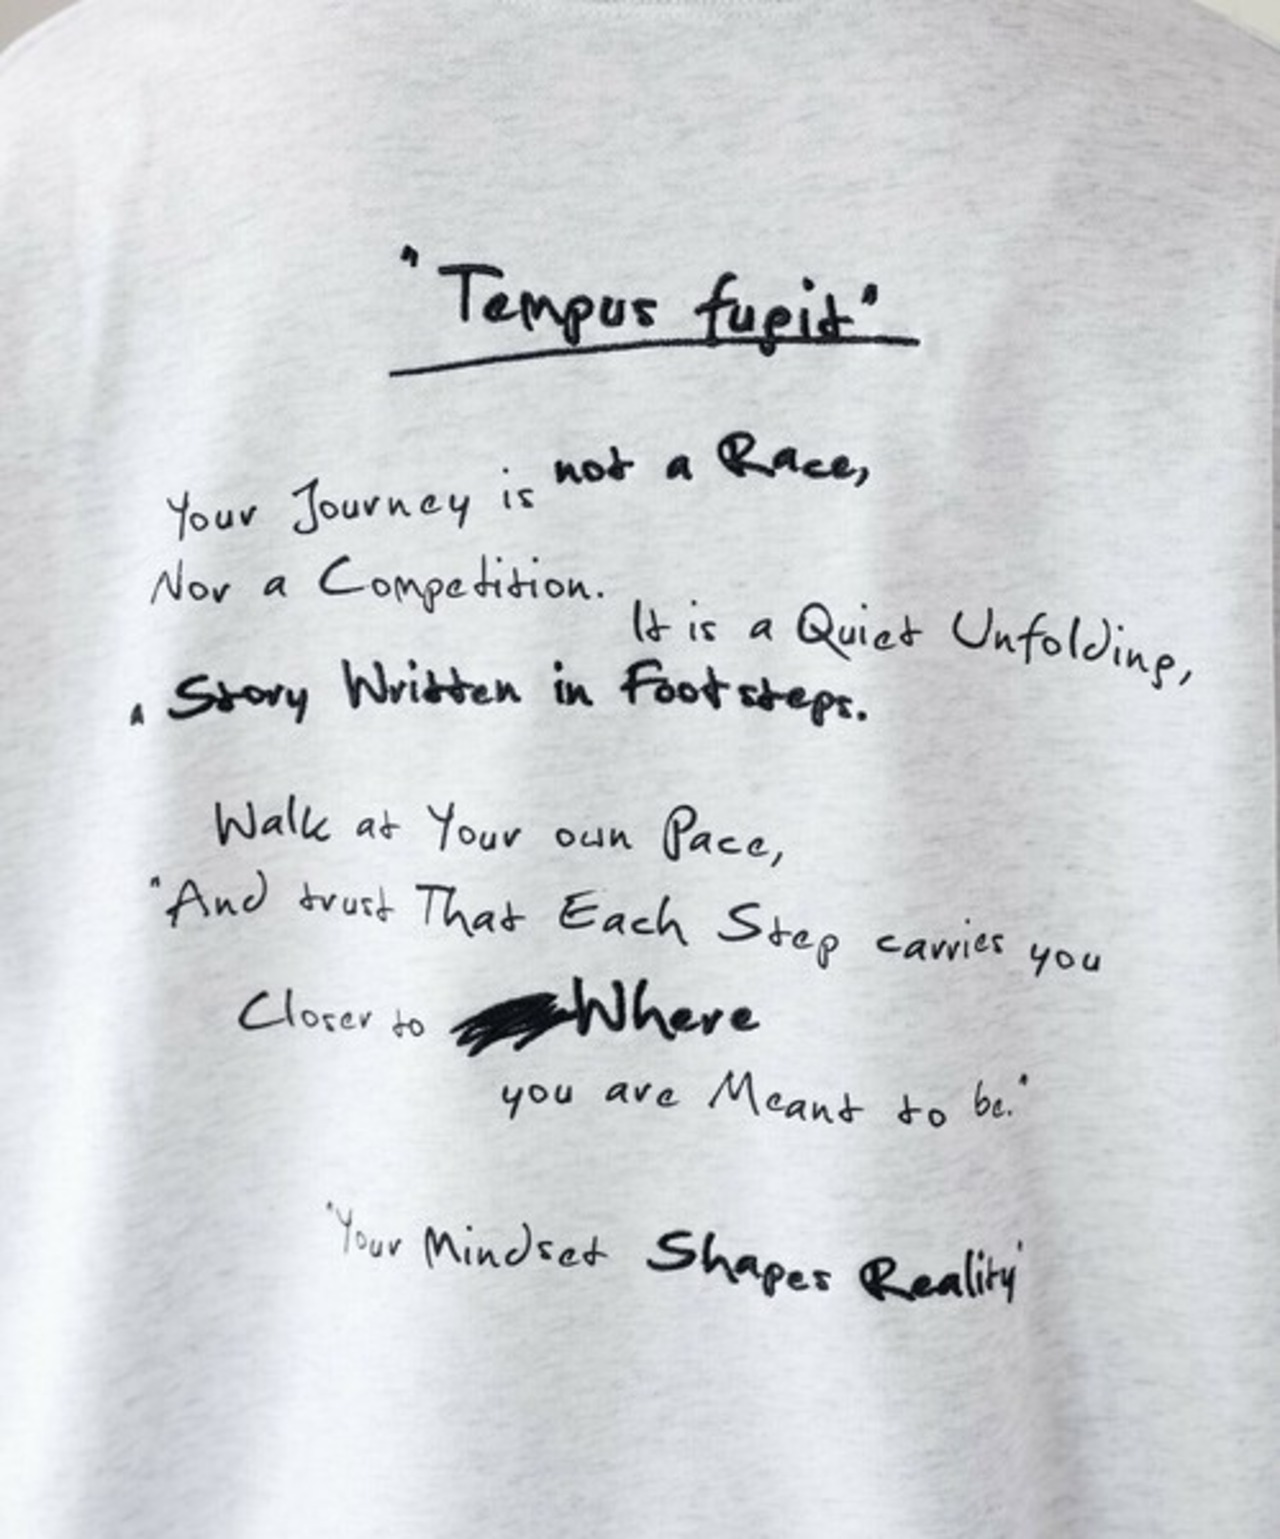 "Tempus fugit"
Your Journey is not a Race,
Nor a Competition.
It is a Quiet Unfolding,
A Story Written in Footsteps.
Walk at Your own Pace,
"And trust That Each Step carries you
Closer to Where
you are Meant to be."
"Your Mindset Shapes Reality"